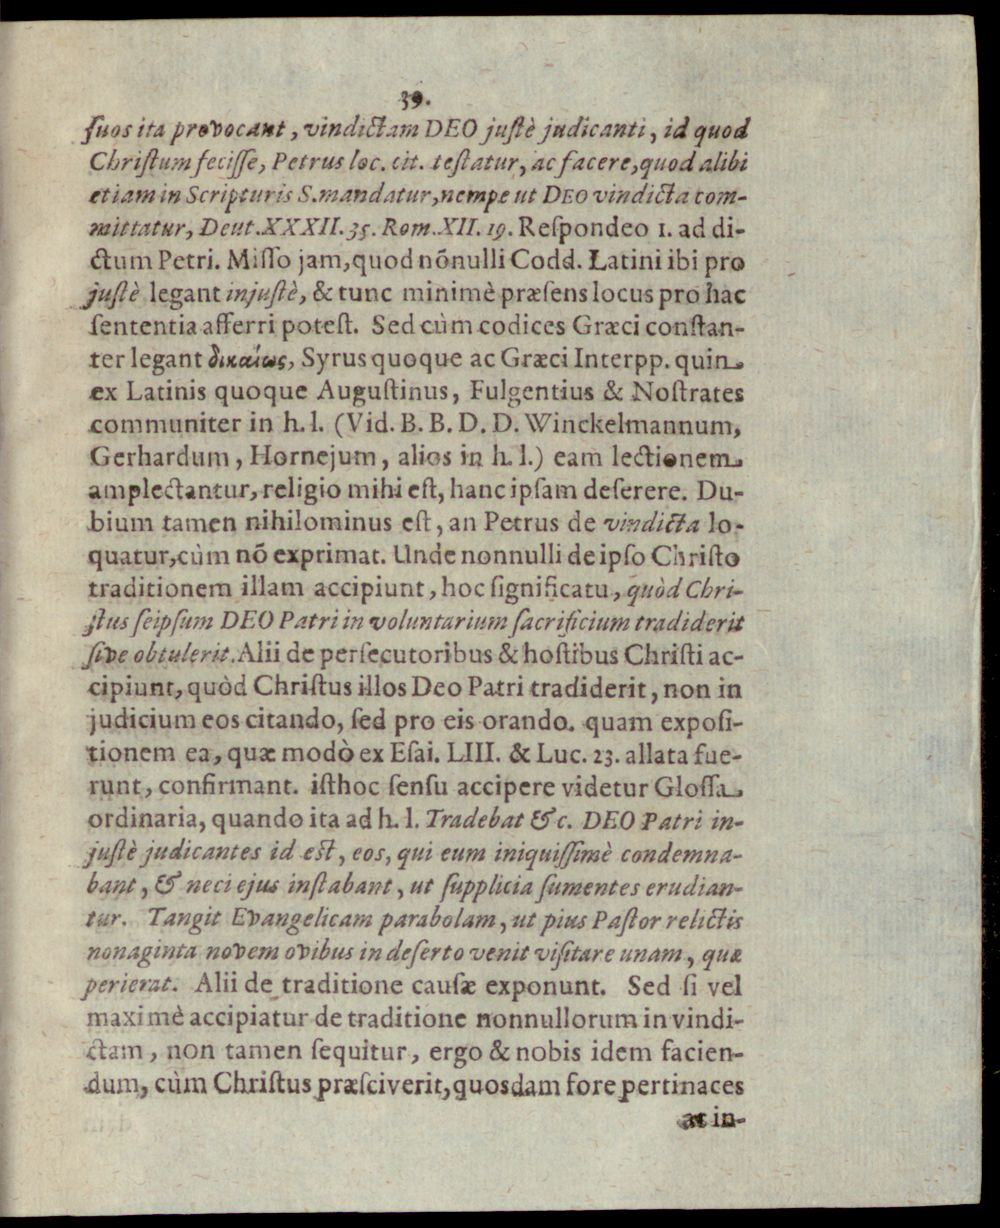 39.
ſuos ita provocant, vindictam DEO juſtè judicanti, id quod
Chriſtum feciſſe, Petrus loc. cit. teſtatur, ac facere, quod alibi
etiam in Scripturis S. mandatur, nempe ut DEO vindicta com-
mittatur, Deut. XXXII. 35. Rom. XII. 19. Reſpondeo 1. ad di-
ctum Petri. Miſſo jam, quod nõnulli Codd. Latini ibi pro
juſtè legant injuſtè, & tunc minimè præſens locus pro hac
ſententia afferri poteſt. Sed cùm codices Græci conſtan-
ter legant δικαίως, Syrus quoque ac Græci Interpp. quin
ex Latinis quoque Auguſtinus, Fulgentius & Noſtrates
communiter in h. l. (Vid. B. B. D. D. Winckelmannum,
Gerhardum, Hornejum, alios in h. l.) eam lectionem
amplectantur, religio mihi eſt, hanc ipſam deſerere. Du-
bium tamen nihilominus eſt, an Petrus de vindicta lo-
quatur, cùm nõ exprimat. Unde nonnulli de ipſo Chriſto
traditionem illam accipiunt, hoc ſignificatu, quòd Chri-
ſtus ſeipſum DEO Patri in voluntarium ſacrificium tradiderit
ſive obtulerit. Alii de perſecutoribus & hoſtibus Chriſti ac-
cipiunt, quòd Chriſtus illos Deo Patri tradiderit, non in
judicium eos citando, ſed pro eis orando. quam expoſi-
tionem ea, quæ modò ex Eſai. LIII. & Luc. 23. allata fue-
runt, confirmant. iſthoc ſenſu accipere videtur Gloſſa
ordinaria, quando ita ad h. l. Tradebat &c. DEO Patri in-
juſtè judicantes id eſt, eos, qui eum iniquiſſimè condemna-
bant, & neci ejus inſtabant, ut ſupplicia ſumentes erudian-
tur. Tangit Evangelicam parabolam, ut pius Paſtor relictis
nonaginta novem ovibus in deſerto venit viſitare unam, quæ
perierat. Alii de traditione cauſæ exponunt. Sed ſi vel
maximè accipiatur de traditione nonnullorum in vindi-
ctam, non tamen ſequitur, ergo & nobis idem facien-
dum, cùm Chriſtus præſciverit, quosdam fore pertinaces
ac in-